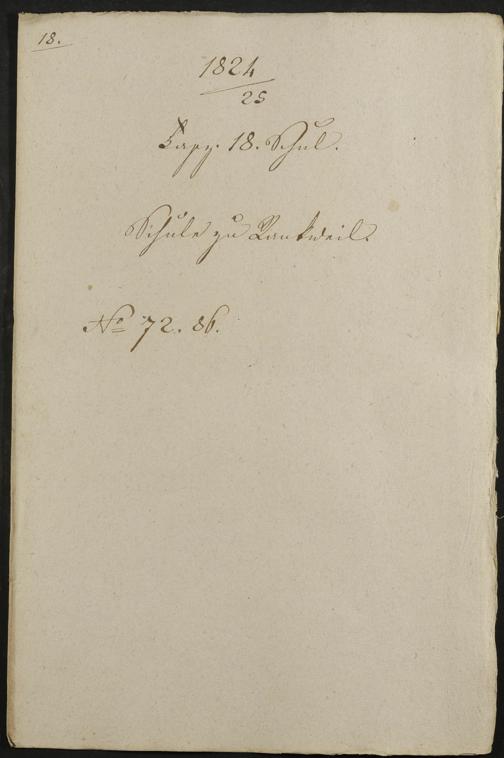 18.
1824
25
Lapp. 18. Schul.
Schule zu Rankweil.
No 72. 86.